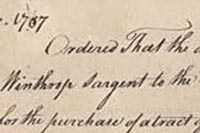 . 1787
Ordered That the
Winthrop Sargent to the
for the purchase of a tract o